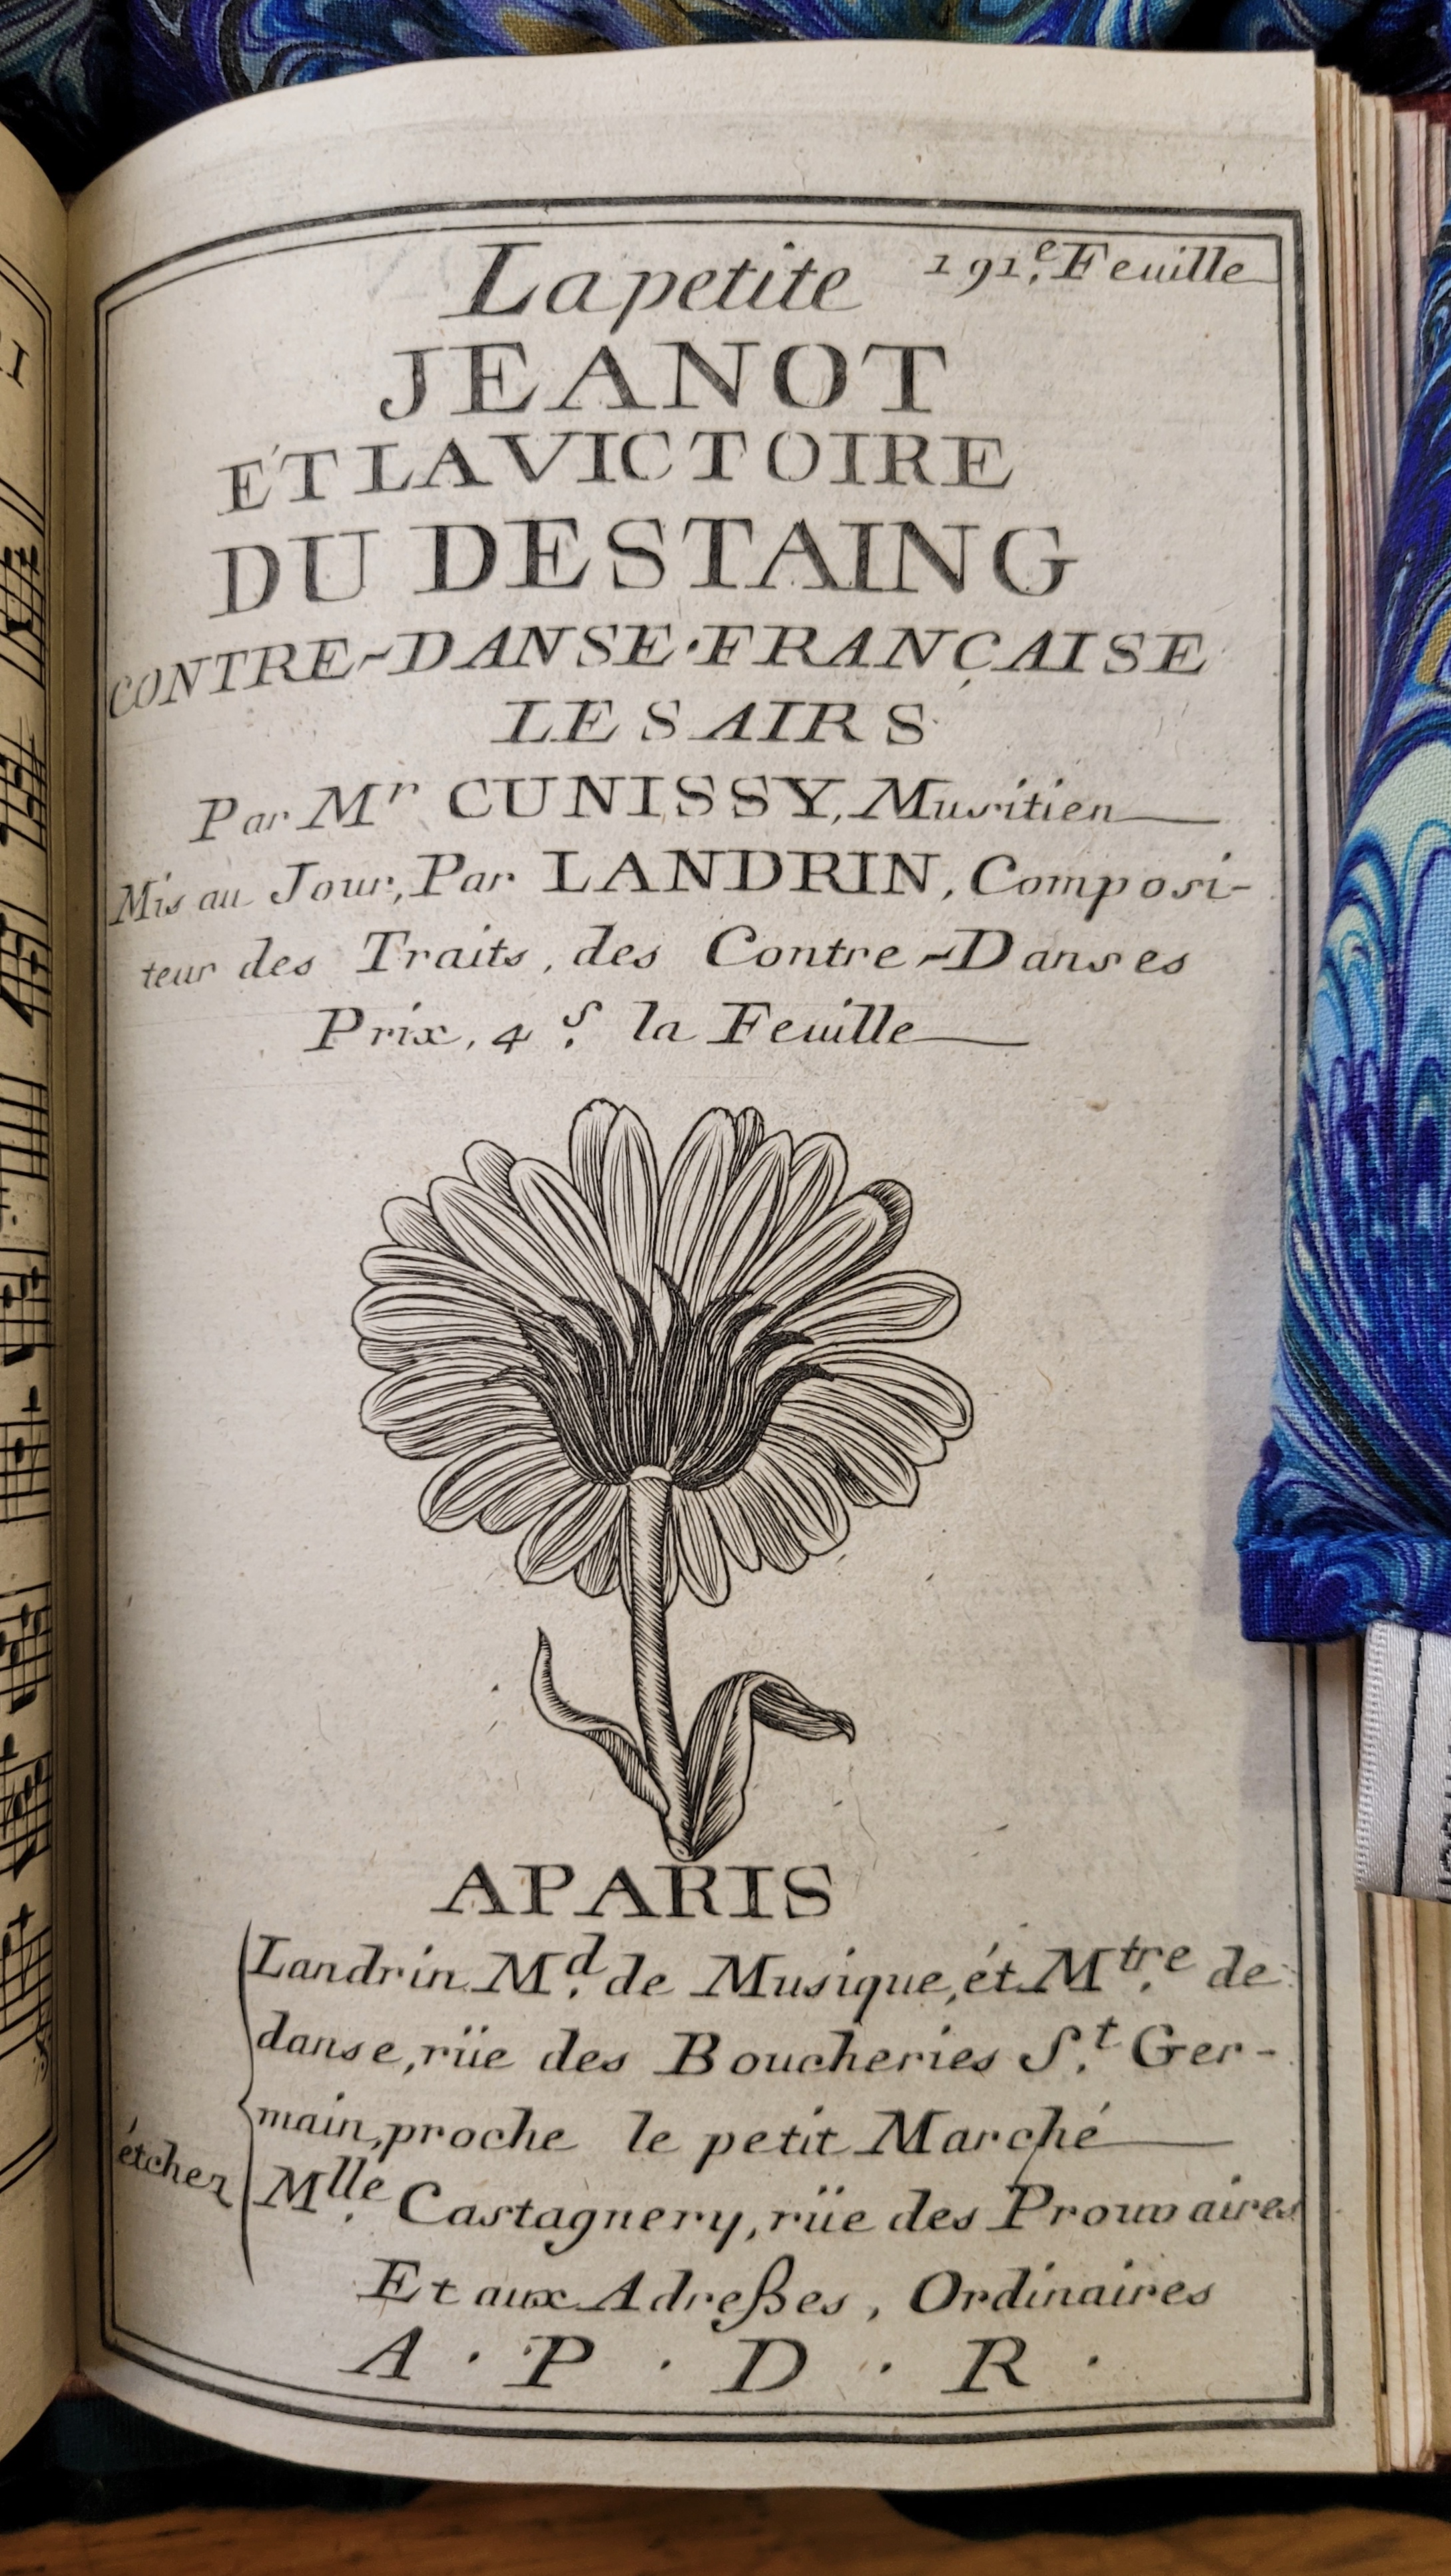 191.e Feuille
La petite
JEANOT
ÉT LA VICTOIRE
DU DESTAING
CONTRE-DANSE·FRANÇAISE
LES AIRS
Par Mr CUNISSY, Musitien
Mis au Jour, Par LANDRIN, Composi-
teur des Traits, des Contre-Danses
Prix, 4 s. la Feuille
A PARIS
Landrin Md. de Musique, ét Mtre. de
danse, rüe des Boucheries St. Ger-
main, proche le petit Marché
étchez
Mlle. Castagnery, rüe des Prouvaires
Et aux Adreßes, Ordinaires
A · P · D · R ·